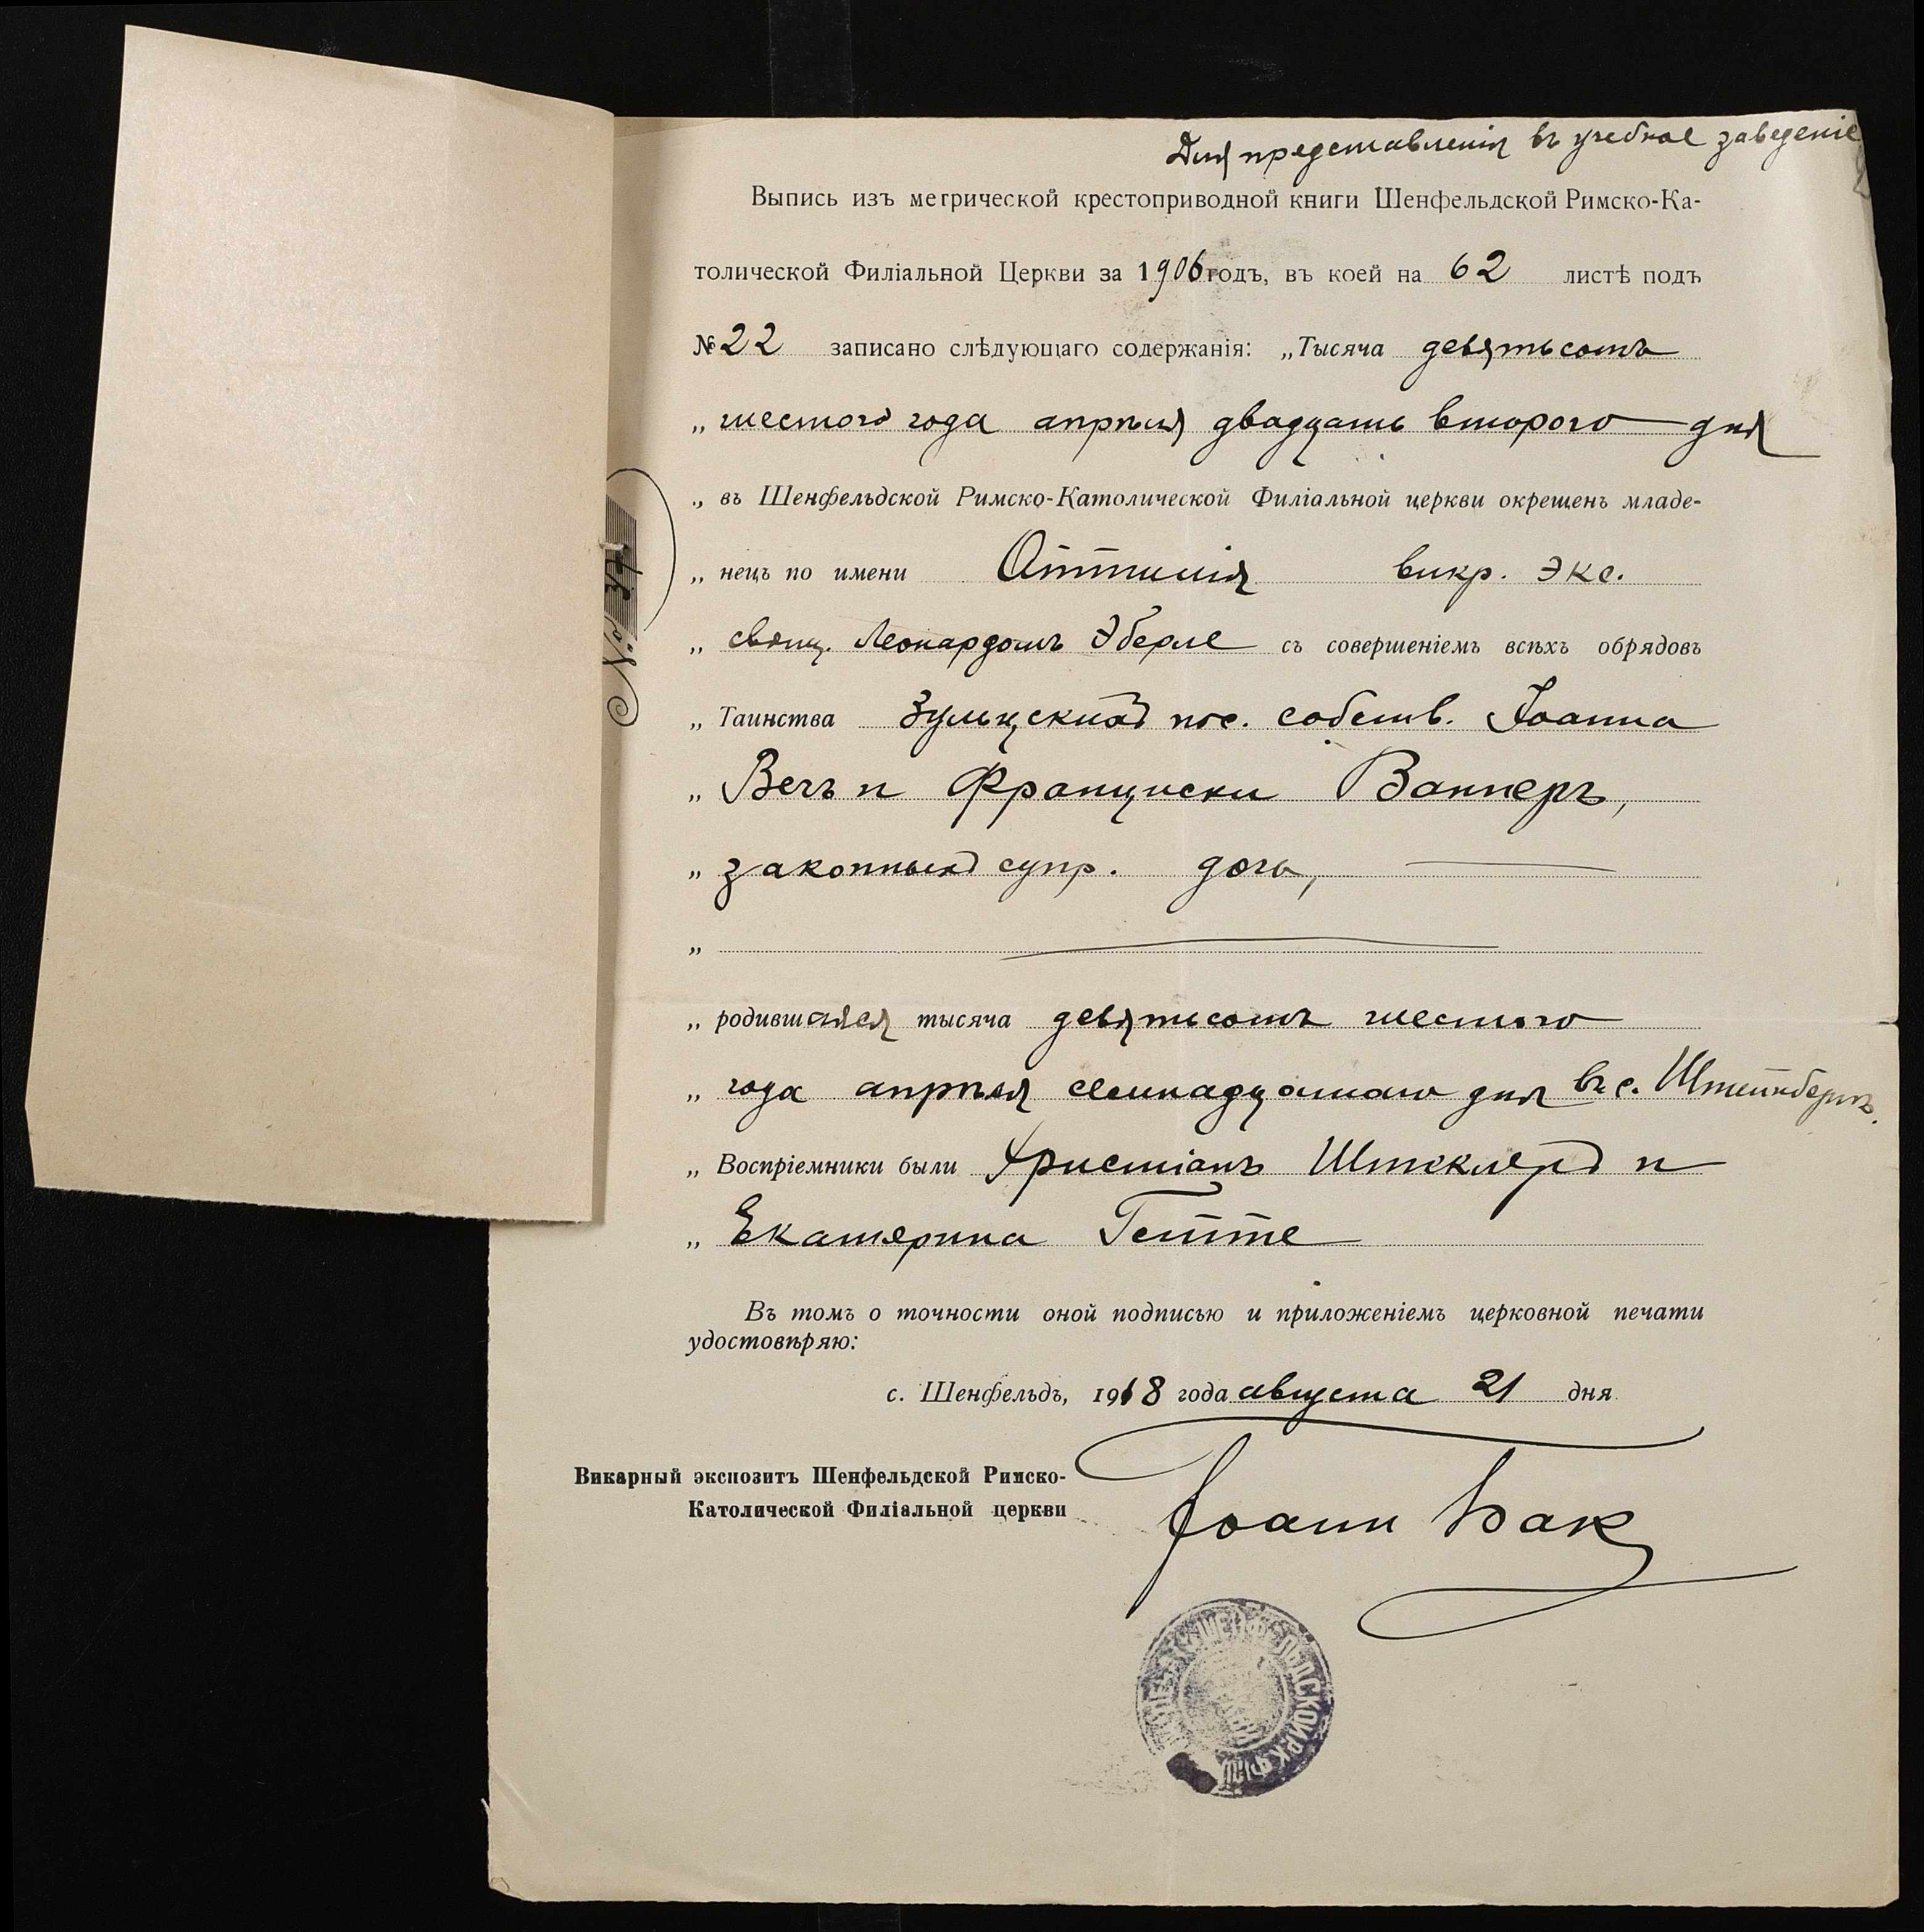 Для представленія въ учебное заведеніе
Выпись изъ метрической крестоприводной книги Шенфельдской Римско-Ка-
толической Филіальной Церкви за 1906 годъ, въ коей на 62 листѣ подъ
№ 22 записано слѣдующаго содержанія: „Тысяча девятьсотъ
„ шестого года апрѣля двадцать второго дня
„ въ Шенфельдской Римско-Католической Филіальной церкви окрещенъ младе-
„ нецъ по имени Оттилія викр. экс.
„ свящ. Леонардомъ Эберле съ совершеніемъ всѣхъ обрядовъ
„ Таинства Зульцскихъ пос. собств. Іоанна
„ Вечъ и Франциски Ваннеръ,
„ законныхъ супр. дочь,
„
„ родившаяся тысяча девятьсотъ шестого
„ года апрѣля семнадцатаго дня въ с. Штейнбергъ.
„ Воспріемники были Христіанъ Штеклеръ и
„ Екатерина Гетте
Въ томъ о точности оной подписью и приложеніемъ церковной печати
удостовѣряю:
с. Шенфельдъ, 1918 года августа 21 дня
Викарный экспозитъ Шенфельдской Римско-
Католической Филіальной церкви
Іоанн Бак
№ 37
ШЕНФЕЛЬДСКОЙ Р К ФИЛ